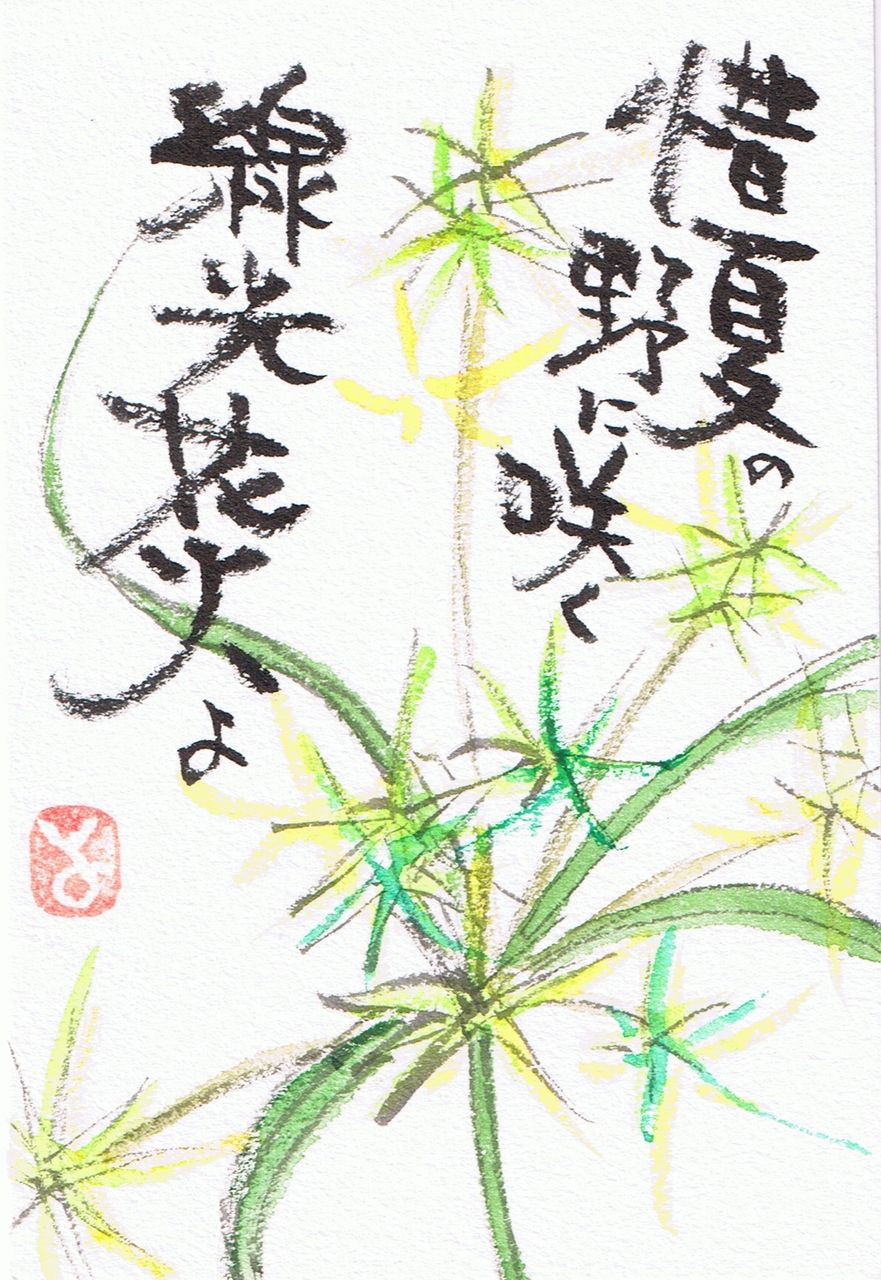 惜夏の
野に咲く
線光花火よ